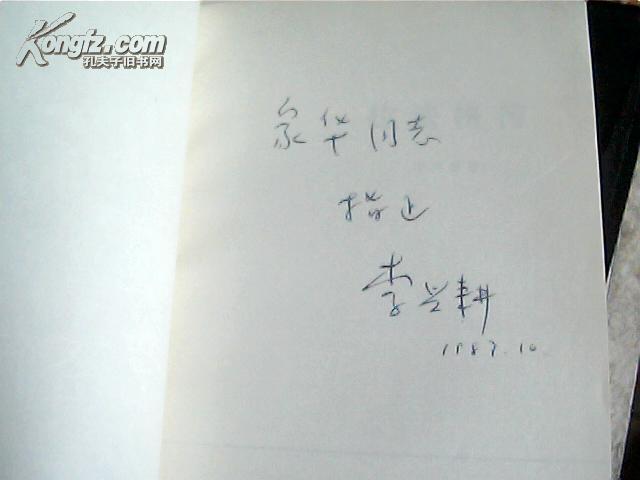 Kongfz.com
孔夫子旧书网
泉华同志
指正
李兴耕
1987.10